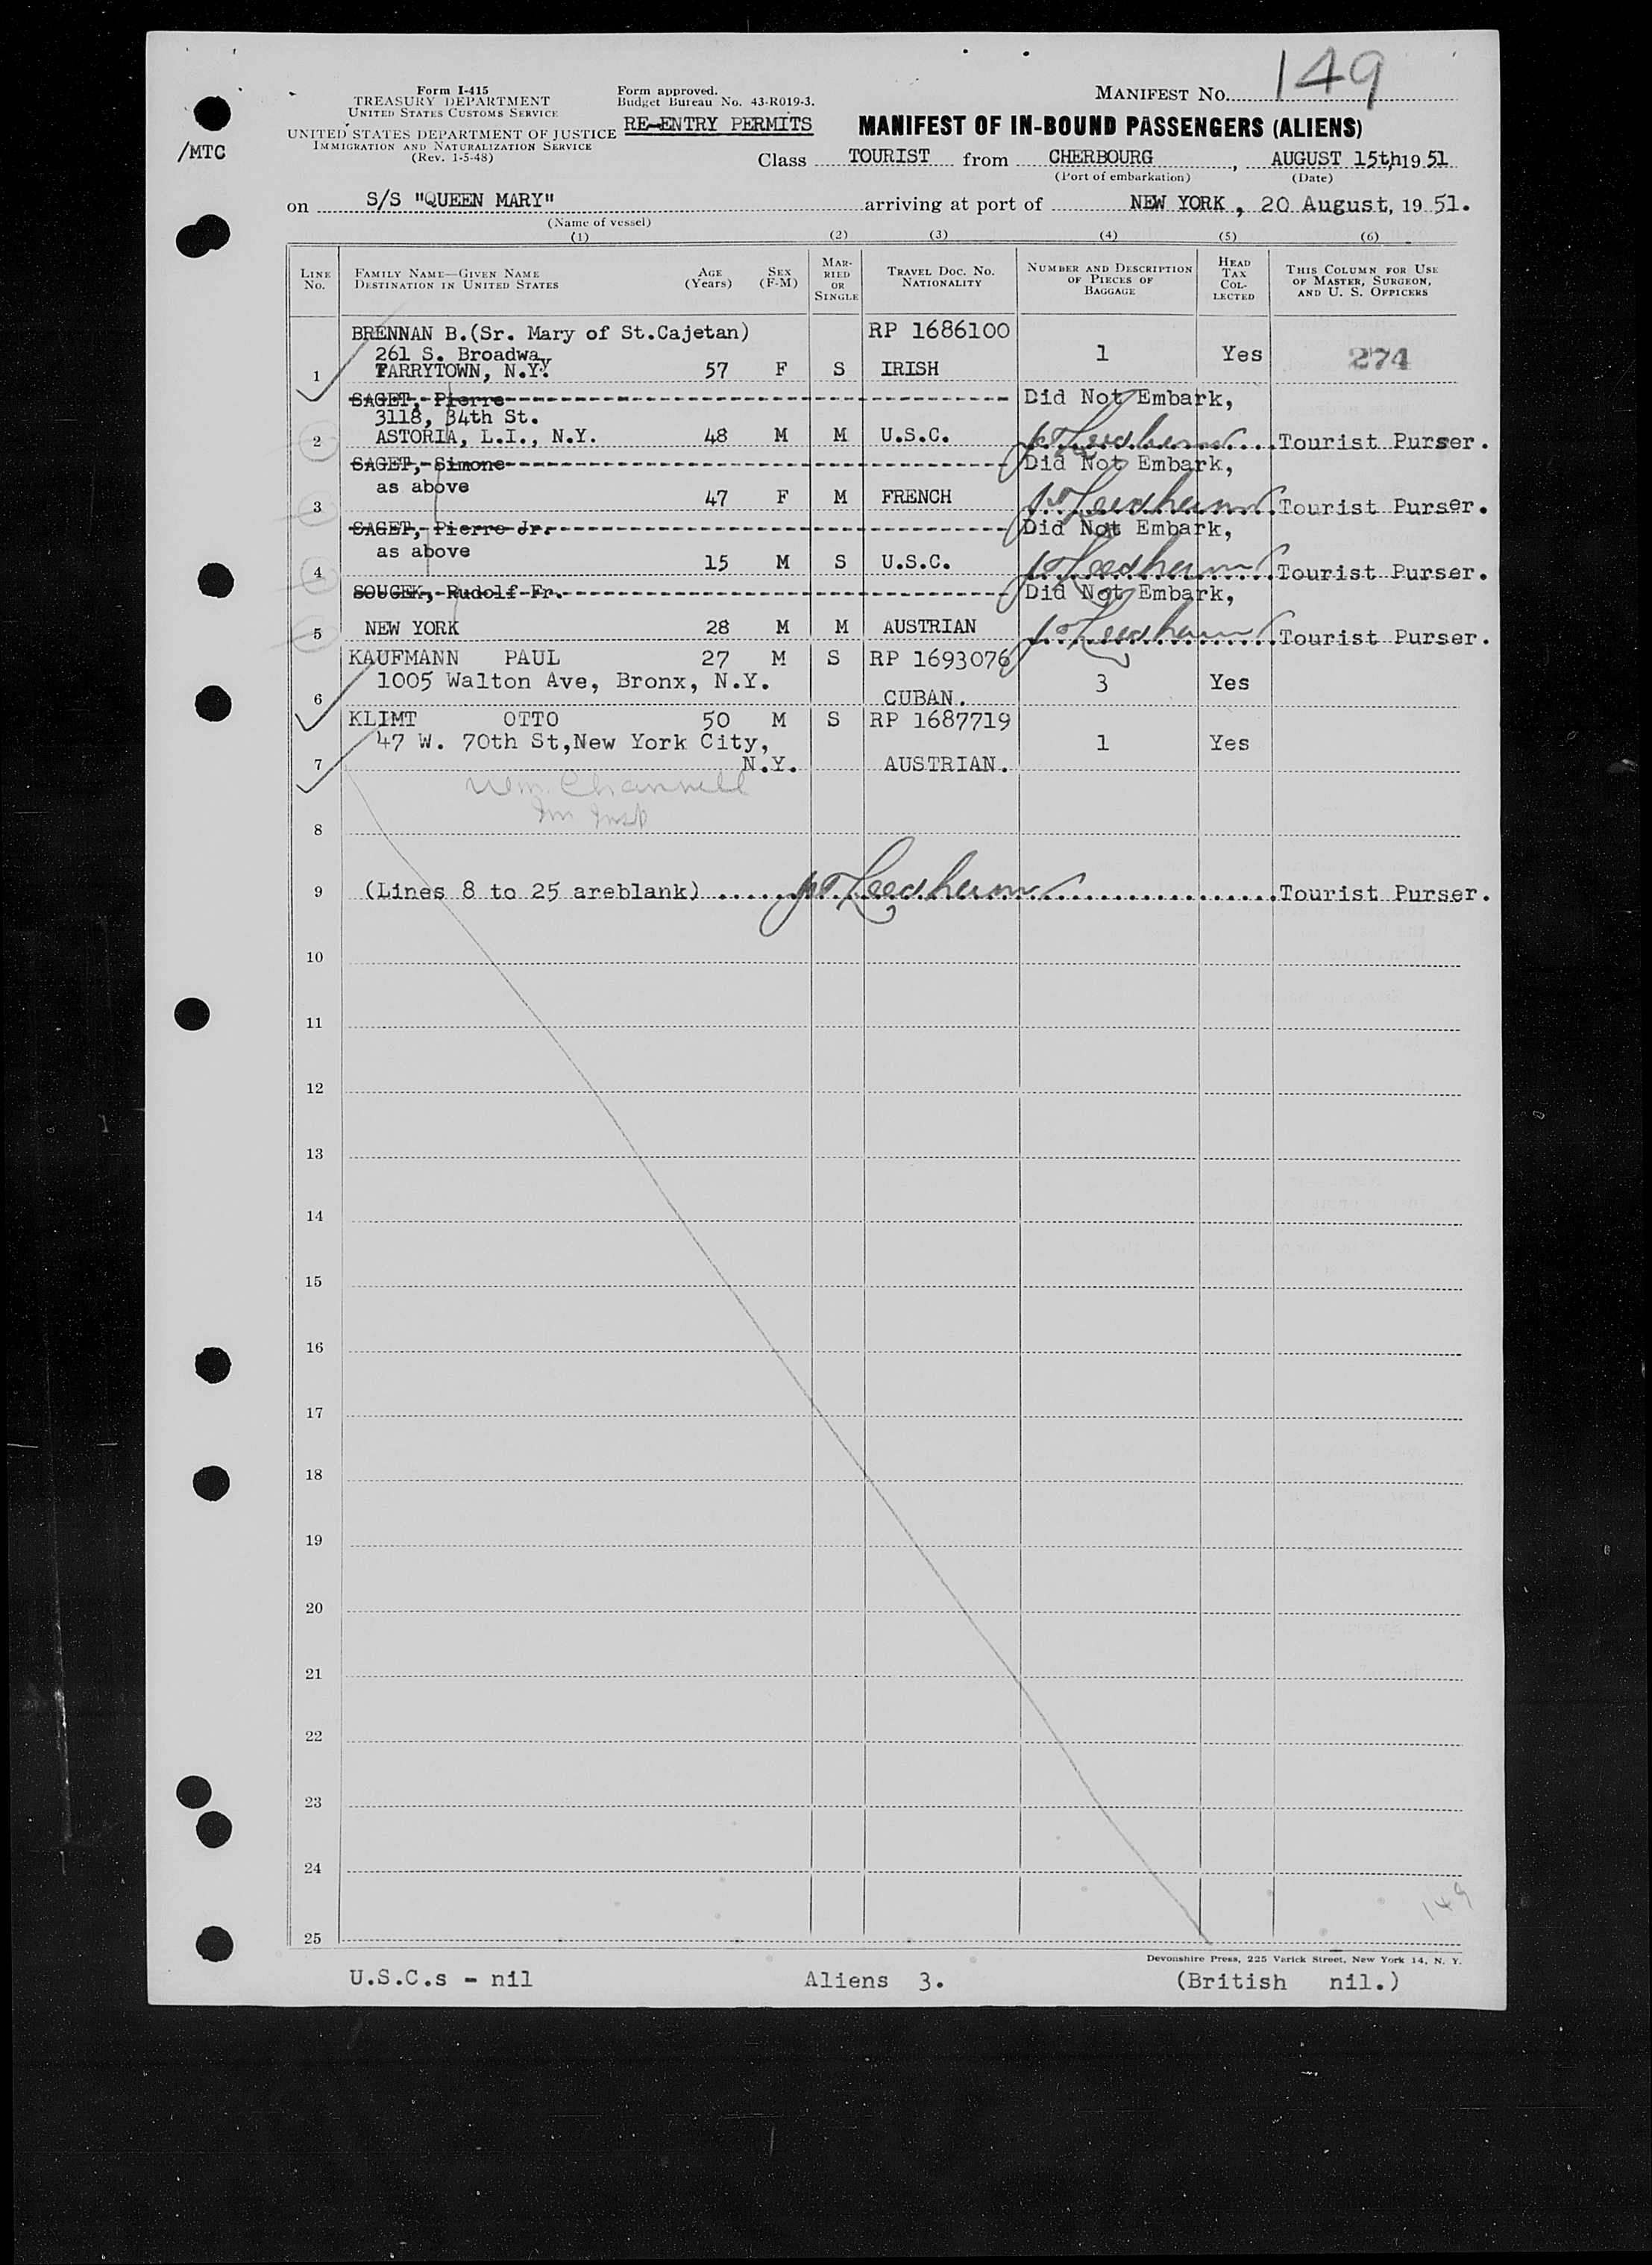 149
Form I-415
TREASURY DEPARTMENT
UNITED STATES CUSTOMS SERVICE
UNITED STATES DEPARTMENT OF JUSTICE
IMMIGRATION AND NATURALIZATION SERVICE
(Rev. 1-5-48)
/MTC
Form approved.
Budget Bureau No. 43-R019-3.
RE-ENTRY PERMITS
MANIFEST NO.
MANIFEST OF IN-BOUND PASSENGERS (ALIENS)
Class TOURIST from CHERBOURG, AUGUST 15th, 19 51
(Port of embarkation) (Date)
on S/S "QUEEN MARY" arriving at port of NEW YORK, 20 August, 19 51.
(Name of vessel)
(1) (2) (3) (4) (5) (6)
LINE NO. FAMILY NAME—GIVEN NAME DESTINATION IN UNITED STATES AGE (Years) SEX (F-M) MARRIED OR SINGLE TRAVEL DOC. NO. NATIONALITY NUMBER AND DESCRIPTION OF PIECES OF BAGGAGE HEAD TAX COLLECTED THIS COLUMN FOR USE OF MASTER, SURGEON, AND U. S. OFFICERS
BRENNAN B.(Sr. Mary of St.Cajetan) RP 1686100
261 S. Broadway 1 Yes 274
1 TARRYTOWN, N.Y. 57 F S IRISH
SAGET, Pierre Did Not Embark,
3118, 34th St.
2 ASTORIA, L.I., N.Y. 48 M M U.S.C. Tourist Purser.
SAGET, Simone Did Not Embark,
as above
3 47 F M FRENCH Tourist Purser.
SAGET, Pierre Jr. Did Not Embark,
as above
4 15 M S U.S.C. Tourist Purser.
SOUCEK, Rudolf Fr. Did Not Embark,
5 NEW YORK 28 M M AUSTRIAN Tourist Purser.
KAUFMANN PAUL 27 M S RP 1693076
1005 Walton Ave, Bronx, N.Y. 3 Yes
6 CUBAN.
KLIMT OTTO 50 M S RP 1687719
47 W. 70th St,New York City, 1 Yes
7 N.Y. AUSTRIAN.
Wm. Channell
Im Insp
8
9 (Lines 8 to 25 areblank) Tourist Purser.
10
11
12
13
14
15
16
17
18
19
20
21
22
23
24
149
25
Devonshire Press, 225 Varick Street, New York 14, N. Y.
U.S.C.s - nil Aliens 3. (British nil.)